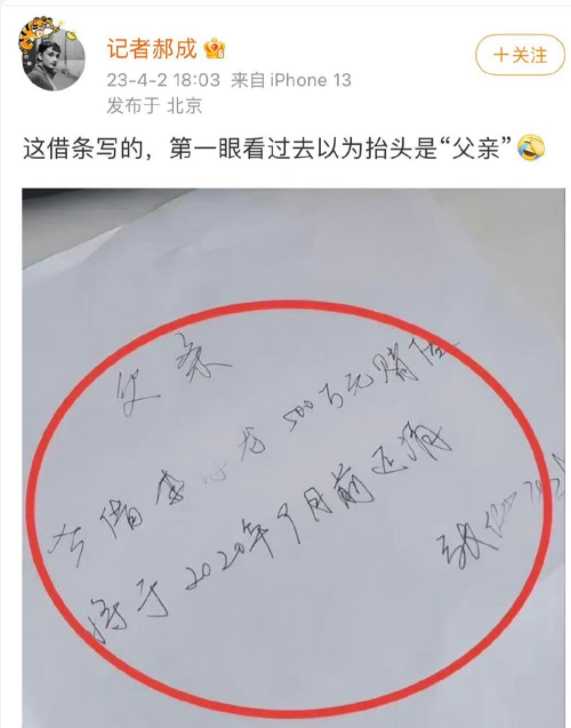 记者郝成
+关注
23-4-2 18:03 来自 iPhone 13
发布于 北京
这借条写的，第一眼看过去以为抬头是“父亲”🤣
欠条
500万元赌债
将于2020年9月前还清
张